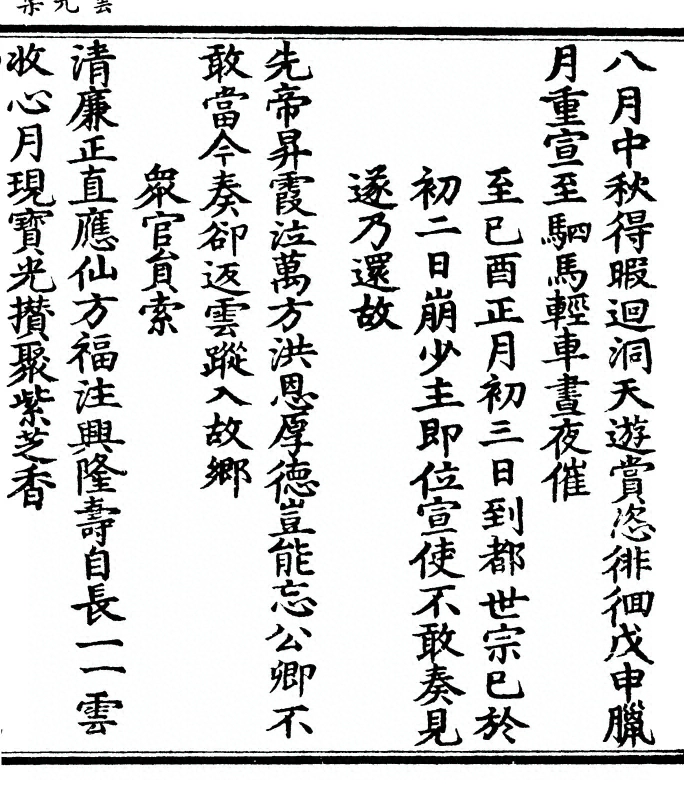 八月中秋得暇迴洞天遊賞恣徘徊戊申臘
月重宣至駟馬輕車晝夜催
至已酉正月初三日到都世宗已於
初二日崩少主即位宣使不敢奏見
遂乃還故
先帝昇霞泣萬方洪恩厚德豈能忘公卿不
敢當今奏卻返雲蹤入故鄉
衆官員索
清廉正直應仙方福注興隆壽自長一一雲
收心月現寶光攅聚紫芝香